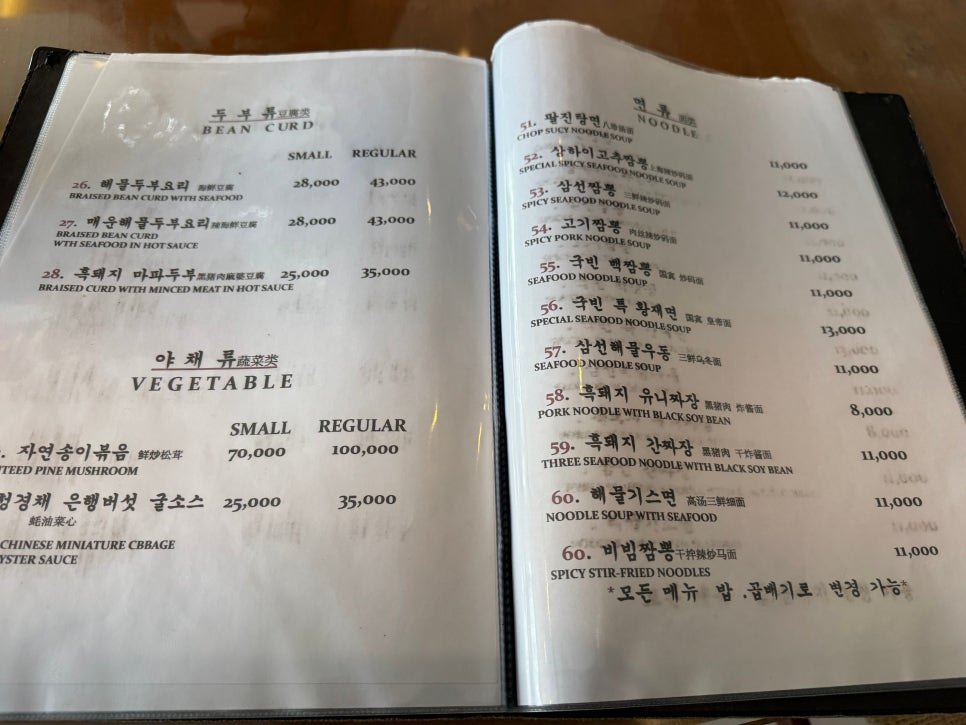 두 부 류豆腐类
BEAN CURD
SMALL REGULAR
26. 해물두부요리 海鲜豆腐 28,000 43,000
BRAISED BEAN CURD WITH SEAFOOD
27. 매운해물두부요리辣海鲜豆腐 28,000 43,000
BRAISED BEAN CURD
WTH SEAFOOD IN HOT SAUCE
28. 흑돼지 마파두부黑猪肉麻婆豆腐 25,000 35,000
BRAISED CURD WITH MINCED MEAT IN HOT SAUCE
야 채 류蔬菜类
VEGETABLE
SMALL REGULAR
. 자연송이볶음 鲜炒松茸 70,000 100,000
TEED PINE MUSHROOM
경채 은행버섯 굴소스 25,000 35,000
蚝油菜心
CHINESE MINIATURE CBBAGE
YSTER SAUCE
면 류 面类
NOODLE
51. 팔진탕면八珍汤面 11,000
CHOP SUCY NOODLE SOUP
52. 상하이고추짬뽕上海辣炒码面 12,000
SPECIAL SPICY SEAFOOD NOODLE SOUP
53. 삼선짬뽕 三鲜辣炒码面 11,000
SPICY SEAFOOD NOODLE SOUP
54. 고기짬뽕 肉丝辣炒码面 11,000
SPICY PORK NOODLE SOUP
55. 국빈 백짬뽕 国宾 炒码面 11,000
SEAFOOD NOODLE SOUP
56. 국빈 특 황재면 国宾 皇帝面 13,000
SPECIAL SEAFOOD NOODLE SOUP
57. 삼선해물우동 三鲜乌冬面 11,000
SEAFOOD NOODLE SOUP
58. 흑돼지 유니짜장 黑猪肉 炸酱面 8,000
PORK NOODLE WITH BLACK SOY BEAN
59. 흑돼지 간짜장 黑猪肉 干炸酱面 11,000
THREE SEAFOOD NOODLE WITH BLACK SOY BEAN
60. 해물기스면 高汤三鲜细面 11,000
NOODLE SOUP WITH SEAFOOD
60. 비빔짬뽕干拌辣炒马面 11,000
SPICY STIR-FRIED NOODLES
*모든 메뉴 밥 .곱배기로 변경 가능*